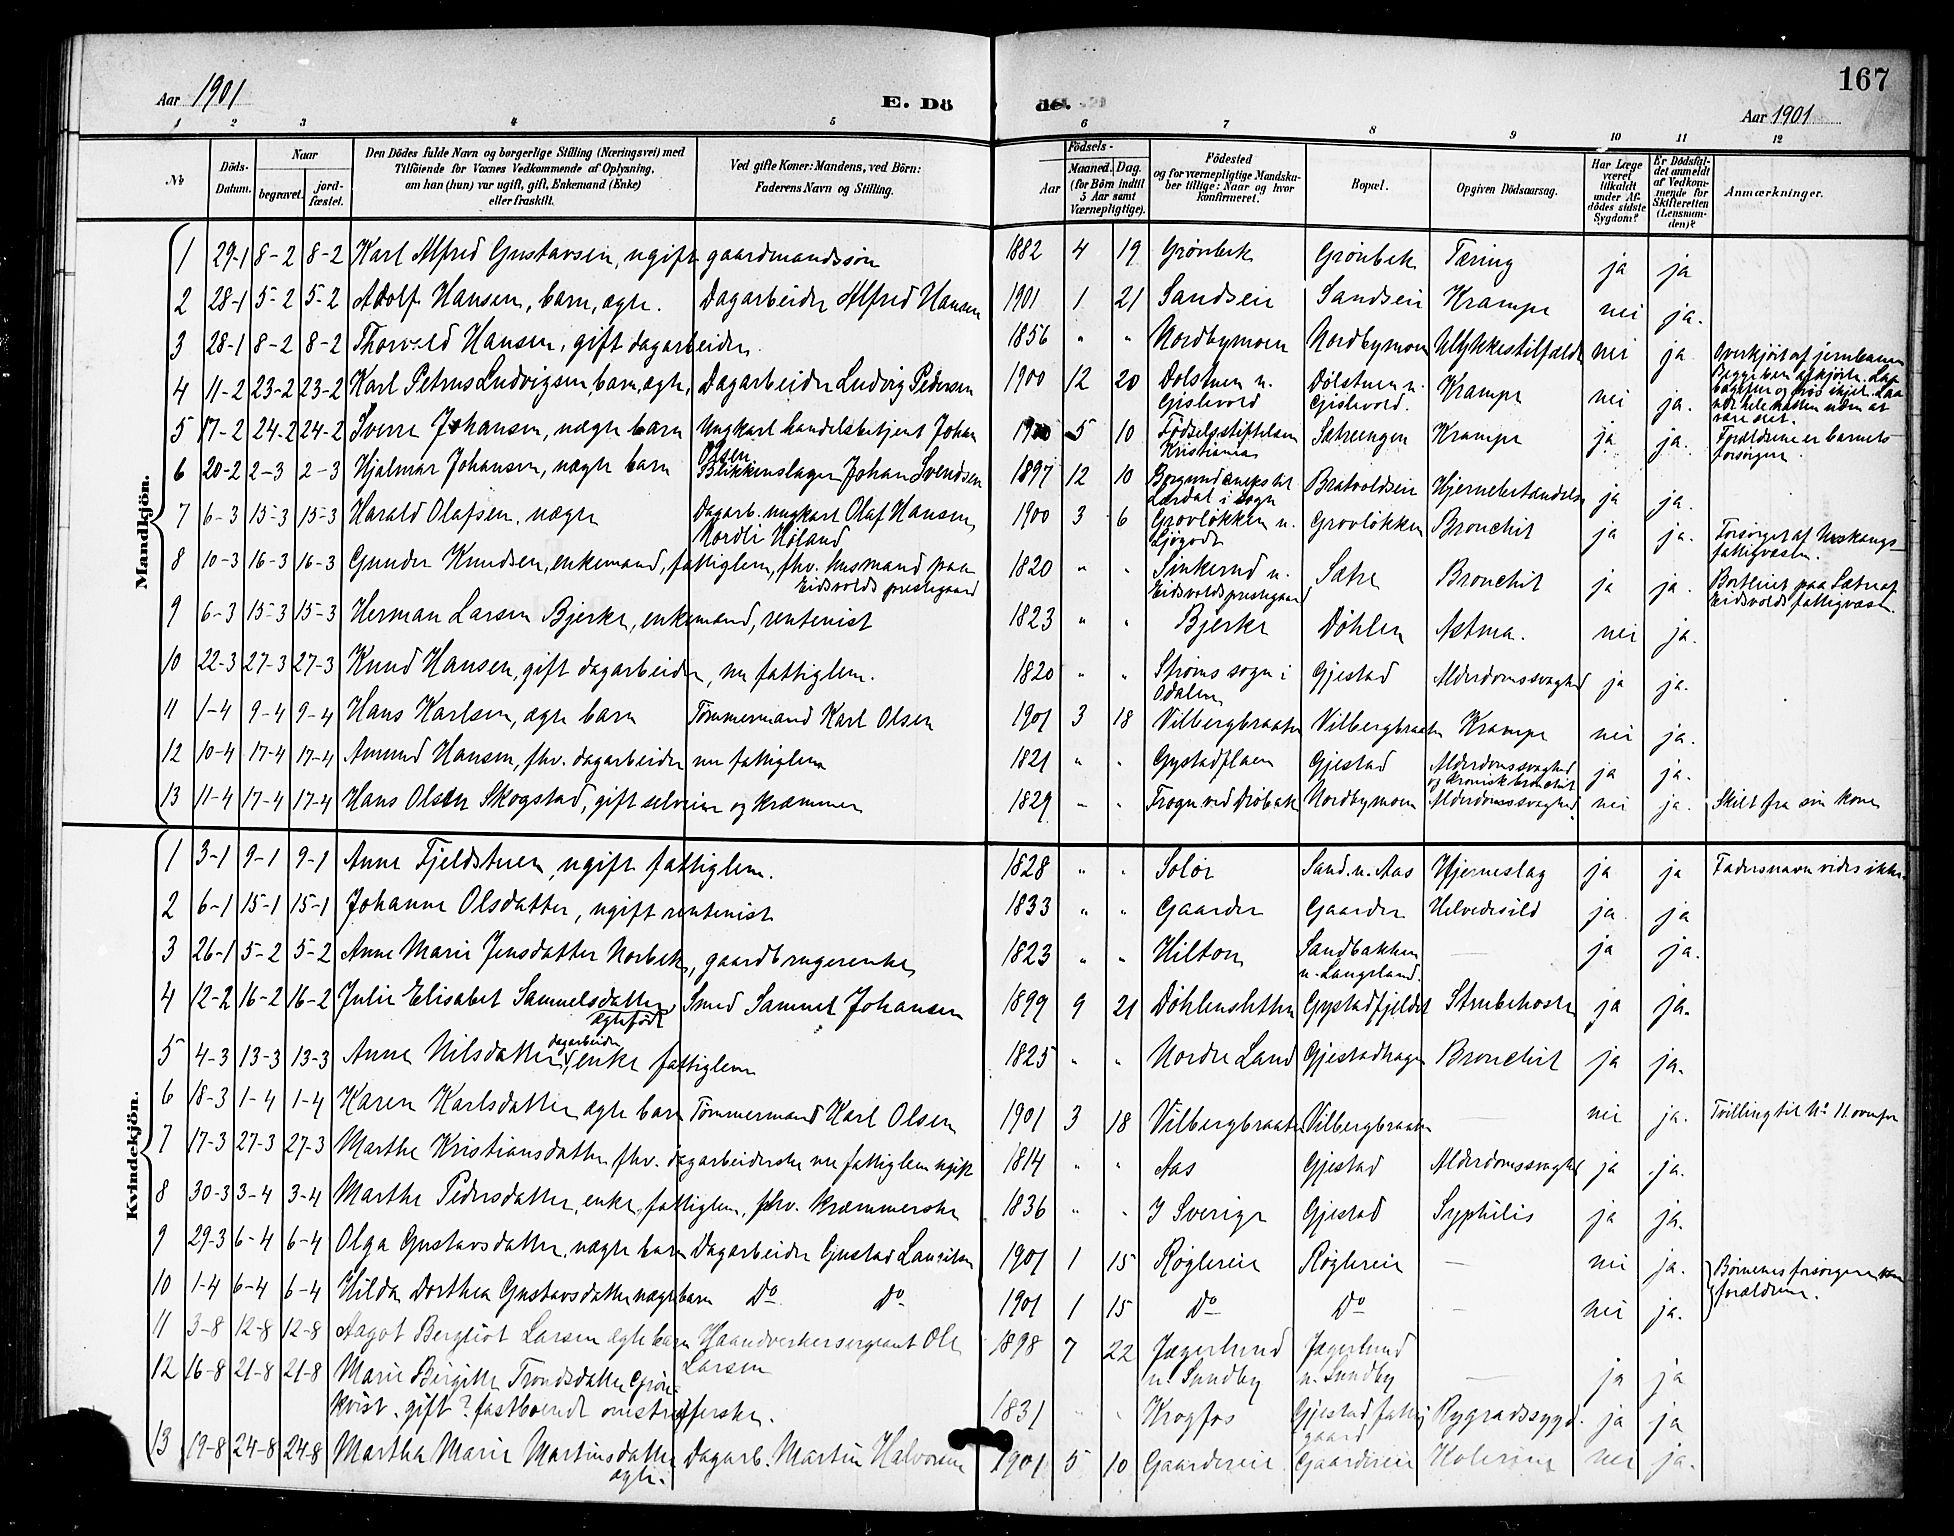 167
Aar 1901
E. Dö de.
Aar 1901
1 2 3 4 5 6 7 8 9 10 11 12
№
Döds-Datum.
Naar
begravet.
jord-fæstet.
Den Dödes fulde Navn og borgerlige Stilling (Næringsvei) med
Tilföiende for Voxnes Vedkommende af Oplysning,
om han (hun) var ugift, gift, Enkemand (Enke)
eller fraskilt.
Ved gifte Koner: Mandens, ved Börn:
Faderens Navn og Stilling.
Födsels-
Aar
Maaned. Dag.
(for Börn indtil
5 Aar samt
Værnepligtige).
Födested
og for værnepligtige Mandska-
ber tillige: Naar og hvor
konfirmeret.
Bopæl.
Opgiven Dödsaarsag.
Har Læge
været
tilkaldt
under Af-
dödes sidste
Sygdom?
Er Dödsfal-
det anmeldt
af Vedkom-
mende for
Skifteretten
(Lensman-
den)?
Anmærkninger.
Mandkjön.
1 29-1 8-2 8-2 Karl Alfred Gustavsen, ugift gaardmandssøn 1882 4 19 Grønbek Grønbek Tæring ja ja
2 28-1 5-2 5-2 Adolf Hansen, barn, ægte. Dagarbeider Alfred Hansen 1901 1 21 Sandseie Sandseie Krampe nei ja.
3 28-1 8-2 8-2 Thorvald Hansen, gift dagarbeider. 1856 " " Nordbymoen Nordbymoen Ulykkestilfælde nei ja Overkjørt af jernbanen
4 11-2 23-2 23-2 Karl Petrus Ludvigsen, barn, ægte, Dagarbeider Ludvig Pedersen 1900 12 20 Dølstuen u. Gislevold Dølstuen u. Gislevold. Krampe nei ja.
Begge ben afkjørte.
hele natten uden at
være død.
5 17-2 24-2 24-2 Sverre Johansen, uægte barn Ungkarl handelsbetjent Johan Olsen 1900 5 10 Fødselsstiftelsen Kristiania Sætreengen Krampe ja. ja. Forældrene er barnets forsørgere
6 20-2 2-3 2-3 Hjalmar Johansen, uægte barn Blikkenslager Johan Svendsen 1897 12 10 Borgund Lærdal i Sogn Bratvoldseie Hjernebetændelse ja ja.
7 6-3 15-3 15-3 Harald Olafsen, uægte Dagarb. ungkarl Olaf Hansen, Nordli Høland 1900 3 6 Grovløkken u. Ljøgodt Grovløkken Bronchit ja ja. Forsørget af fattigvæsen.
8 10-3 16-3 16-3 Gunder Knudsen, enkemand, fattiglem, fhv. husmand paa Eidsvolds prestegaard 1820 " " Sinkerud u. Eidsvolds prestegaard Sætre Bronchit ja ja. Bortleiet paa Sætre af Eidsvolds fattigvæsen.
9 6-3 15-3 15-3 Herman Larsen Bjerke, enkemand, rentenist 1823 " " Bjerke Døhlen Astma. nei ja.
10 22-3 27-3 27-3 Knud Hansen, gift dagarbeider, nu fattiglem. 1820 " " Strøms sogn i Odalen Gjestad Alderdomssvaghed ja ja.
11 1-4 9-4 9-4 Hans Karlsen, ægte barn Tømmermand Karl Olsen 1901 3 18 Vilbergbraaten Vilbergbraaten Krampe nei ja.
12 10-4 17-4 17-4 Amund Hansen, fhv. dagarbeider nu fattiglem 1821 " " Gystadflaen Gjestad Alderdomssvaghed og kronisk bronchit ja ja.
13 11-4 17-4 17-4 Hans Olsen Skogstad, gift selveier og kræmmer 1829 " " Frogn ved Drøbak Nordbymoen Alderdomssvaghed. nei ja. Skilt fra sin kone
Kvindekjön.
1 3-1 9-1 9-1 Anne Fjeldstuen, ugift fattiglem. 1828 " " Solør Sand. u. Aas Hjerneslag ja ja Fadersnavn vides ikke.
2 6-1 15-1 15-1 Johanne Olsdatter, ugift rentenist 1833 " " Gaarder Gaarder Helvedesild ja ja
3 26-1 5-2 5-2 Anne Marie Jensdatter Norbek, gaardbrugerenke 1823 " " Hilton Sandbakken u. Langeland. — ja ja.
4 12-2 16-2 16-2 Julie Elisabet Samuelsdatter ægtefødt Smed Samuel Johansen 1899 9 21 Døhlensletten Gystadfjeldet Strubehoste ja ja.
5 4-3 13-3 13-3 Anne Nilsdatter, dagarbeider enke fattiglem 1825 " " Nordre Land Gjestadhagen Bronchit ja ja.
6 18-3 1-4 1-4 Karen Karlsdatter ægte barn Tømmermand Karl Olsen 1901 3 18 Vilbergbraaten Vilbergbraaten — nei ja. Tvilling til No 11 ovenfor
7 17-3 27-3 27-3 Marthe Kristiansdatter fhv. dagarbeiderske nu fattiglem ugift 1814 " " Aas Gjestad Alderdomssvaghed ja ja.
8 30-3 3-4 3-4 Marthe Pedersdatter, enke, fattiglem, fhv. kræmmerske 1836 " " I Sverige Gjestad Syphilis ja ja.
9 29-3 6-4 6-4 Olga Gustavsdatter, uægte barn Dagarbeider Gustav Lauritsen 1901 1 15 Røglereie Røglereie — nei ja. Børnenes forsørgere
10 1-4 6-4 6-4 Hilda Dorthea Gustavsdatter uægte barn Do Do 1901 1 15 Do Do — nei ja. forældrene.
11 3-8 12-8 12-8 Aagot Bergliot Larsen ægte barn Haandverkersergeant Ole Larsen 1898 7 22 Jægerlund u. Sundby Jægerlund u. Sundby — ja ja
12 16-8 21-8 21-8 Marie Birgitte Trondsdatter Grön-
kvist. gift? fastboende omstreiferske. 1831 " " Krogfos Gjestad fattiggaard Rygradssygd. ja ja
13 19-8 24-8 24-8 Martha Marie Martinsdatter ægte. Dagarb. Martin Halvorsen 1901 5 10 Gaardereie Gaardereie Kolerine nei ja.